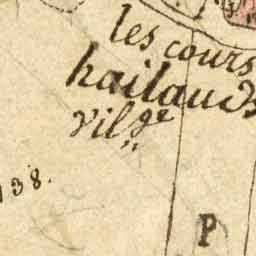 les cours
hailauds
vilge
138.
P